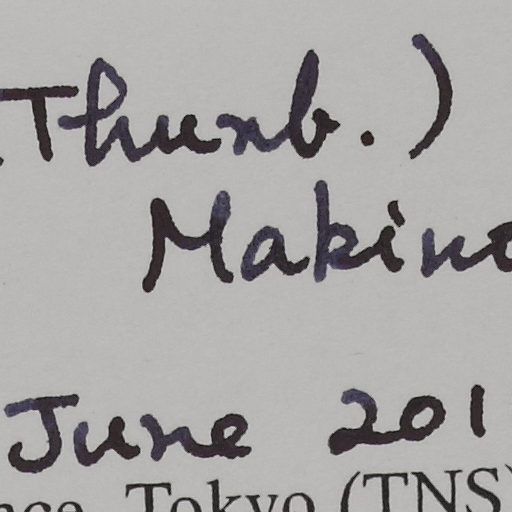 (Thunb.)
Makino
June 201
nce, Tokyo (TNS)